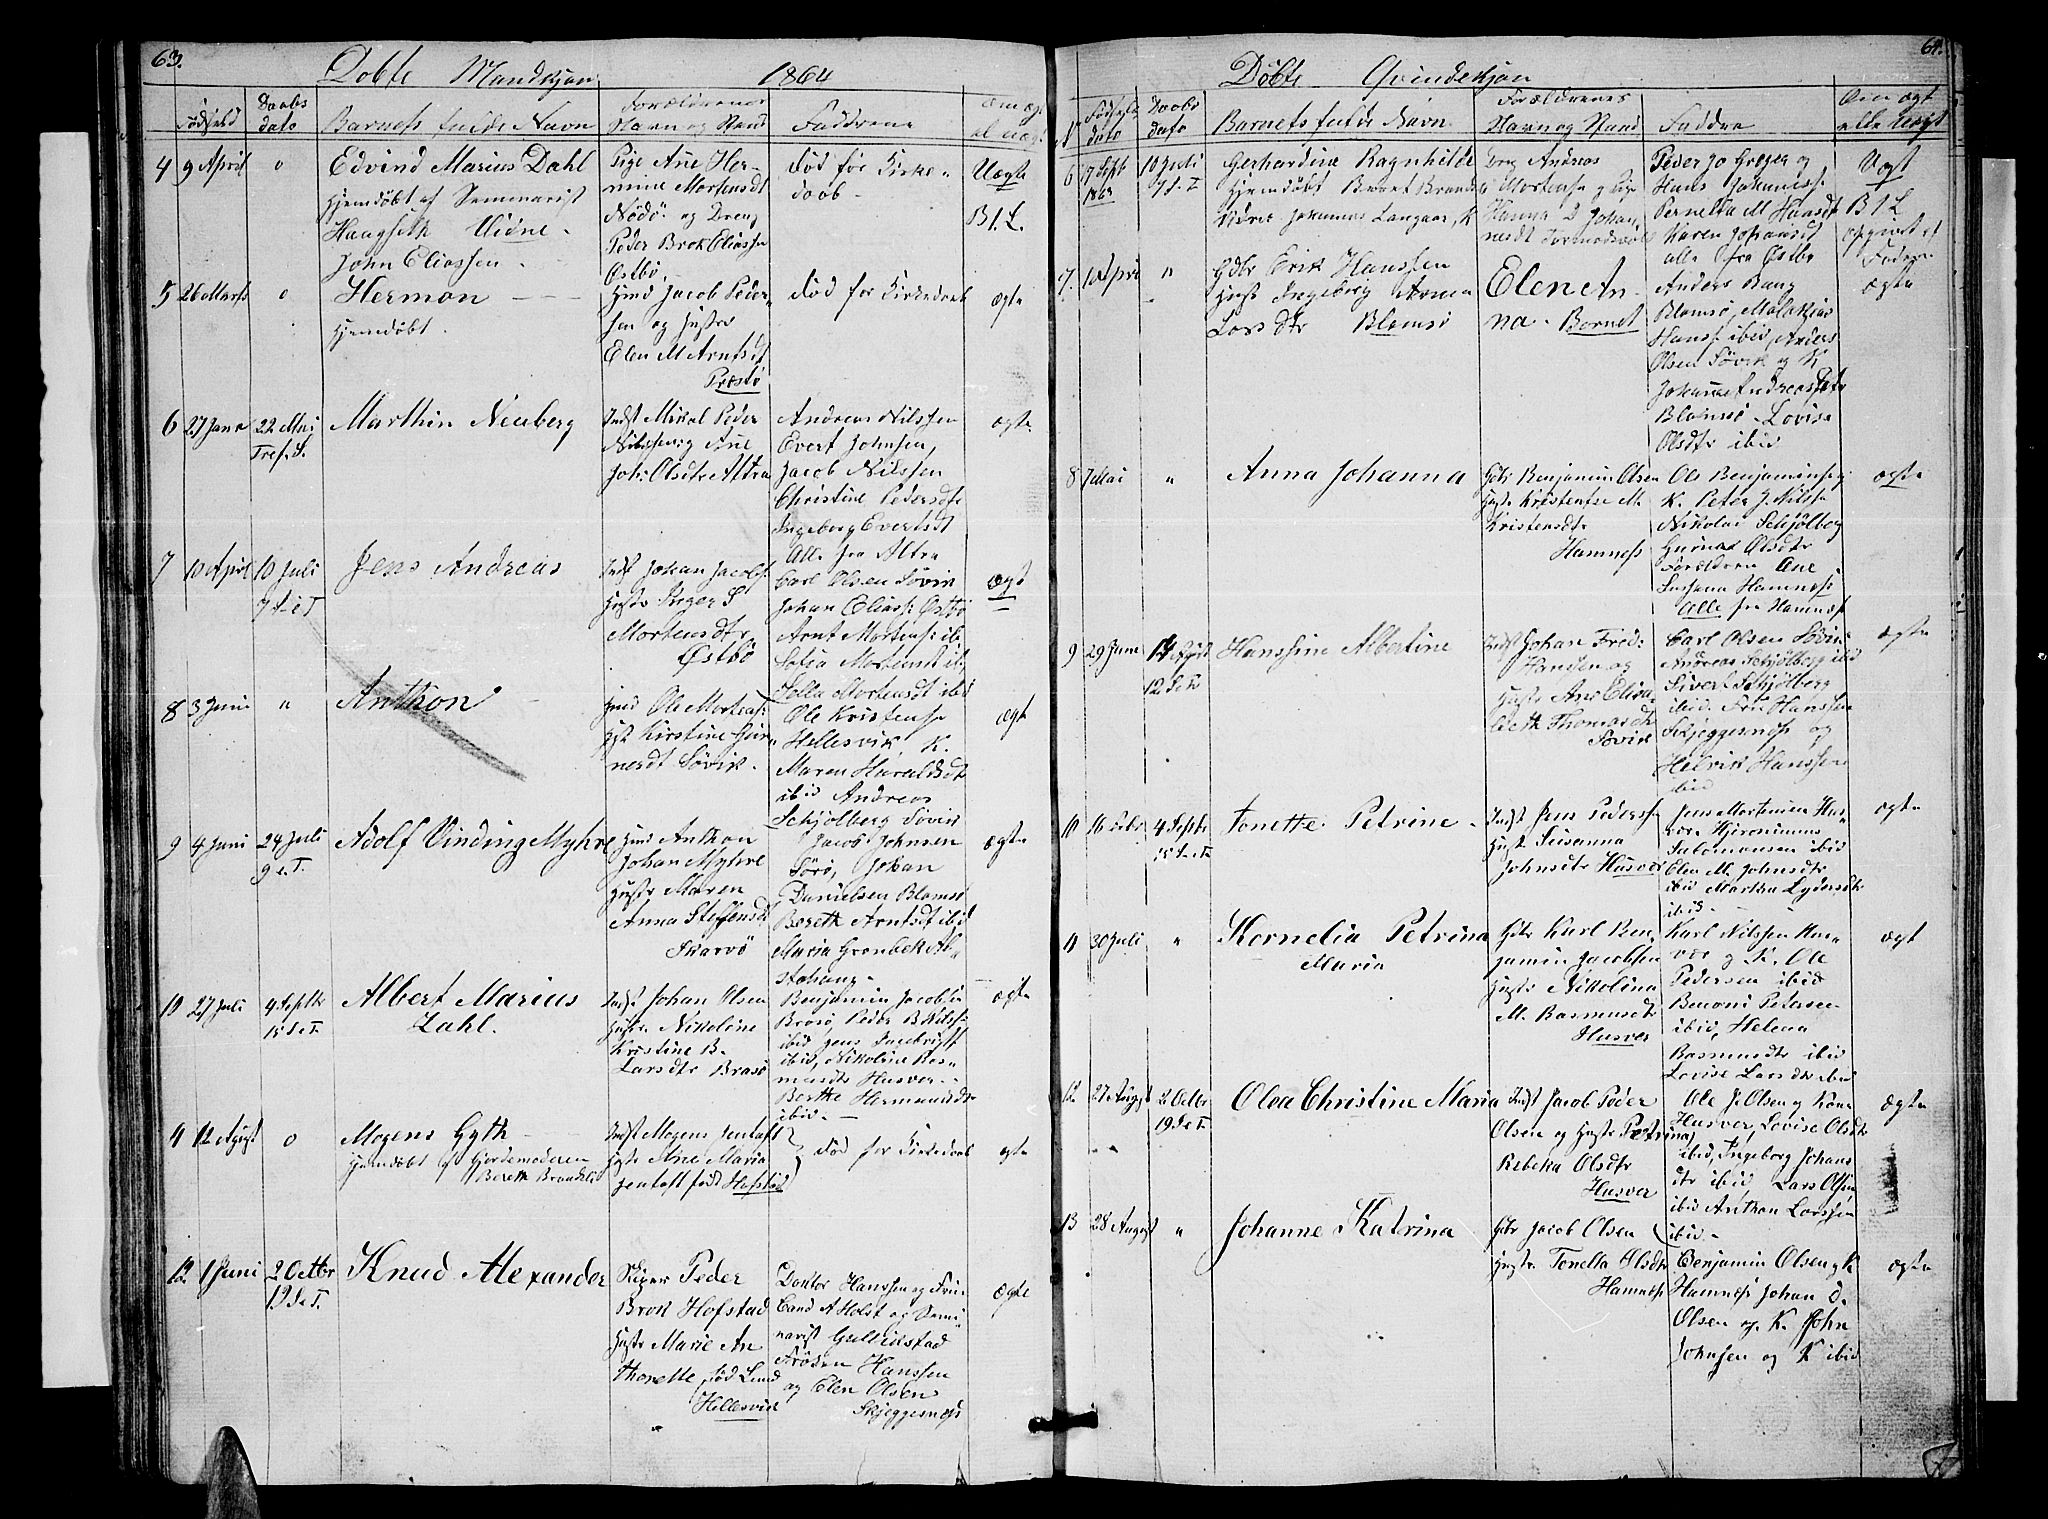 63.
Døbte Mandkjøn 1864
Fødsels
Daabs dato
Barnets fulde Navn
Forældrenes Navn og Stand
Faddrene
Om ægte el uægt
4 9 April o
Edvind Marius Dahl
hjemdøbt af Seminarist
Haugseth Vidne
John Eliassen
Pige Ane Her-
mine Mortensdt
Nödö og Dreng
Peder Brok Eliassen
Østbø
død før Kirke-
daab
Uægte
B 1. L.
5 26 Marts o
Hermon
hjemdøbt.
Jacob Peder-
sen og Hustro
Elen M Arntsdt
Præstø
død før Kirkedaab
ægte
6 27 Janr 22 Mai
Tref. S.
Marthin Neuberg
Indst Mikal Peder
Nilssen og Ane
Joh: Olsdtr Altra
Andreas Nilssen
Evert Johnsen,
Jacob Nilssen
Christine Pedersdtr
Ingeborg Evertsdt
All. fra Altra
ægte
7 10 April 10 Juli
7 S. e T
Jens Andreas
Indst Johan Jacobs:
Hustr Inger S
Mortensdtr
Østbö
Carl Olsen Søvik
Johan Eliass: Østbö
Arnt Mortens: ibi
Sofia Mortensdt ib.
Jella Mortensdt ibid
ægt
8 3 Juni "
Anthon
Ole Mortens:
Hst Kirstine Gur-
nesdt Søvik.
Ole Kristense
Hellesvik K.
Maren Haraldsdt
ibid Andreas
Schjölberg Søvik
ægt
9 4 Juni 24 Juli
9 e. T.
Adolf Vinding Myhre
Anthon
Johan Myhre
Hustr Maren
Anna Steffensdt
Skarvö
Jacob Johnsen
Sörö, Johan
Danielsen Blomsö
Bereth Arntsdt ibid
Maria Grønbek Al-
stahaug
ægte
10 27 Juli 4 Septbr
15 S e T.
Albert Marius
Zahl.
Indst Johan Olsen
Hustr. Nikoline
Kristine B.
Larsdtr Brasö
Benjamin Jacobsen
Brasö, Peder B Nilss:
ibid Jens Ingebrigt
ibid, Nikoline Ras-
musdtr Husver
Berthe Hermansdtr
ibid
ægte
11 12 Augst o
Mogens Gyth
hjemdøbt af Gjordemoderen
Bereth Brandel
Indst Mogens Jentoft
Hustr Ane Maria
Jentoft født Hofstad
død før Kirkedaab
ægte
12 1 Juni 2 Octbr
19 S e T.
Knud Alexander
Skiper Peder
Brok Hofstad
Hustr Marie An
thonette född Lund
Hellesvik
Doktor Hanssen og Frue
Cand A Holst og Semi-
narist Gullikstad
Frösen Hanssen
og Elen Olsen
Skjeggesnæss
ægte
64.
Døbte Qvindekjøn
N
Fødsels dato
Daabs dato
Barnets fulde Navn
Forældrenes Navn og Stand
Faddre
Om ægt elle Uægt
6 17 Sept 1863 10 Juli
7 S. e T
Gerhardine Ragnhilde
hjemdøbt Beret Brandel
Vidne Johannes Langaar, K
Dreng Andreas
Mortense og Pige
Hanna D Johan
nesdt Tormodsvol
Peder Jo Greger og
Hans Johanness
Pernella M Hansdt
Karen Johansdt
alle fra Østbø
Uægt
B 1 L
opgivet af
Faderen
7. 1 April "
Gdbr Erik Hanssen
Hust Ingeborg Arnea
Lars dtr Blomsö
Elen An-
na - Barnet
Anders Bang
Blomsö, Malakias
Hanss: ibid, Anders
Olsen Søvik og K
Johanna Andreas Petr
Blomsö Lovise
Olsdtr ibid
ægte
8 7 Mai "
Anna Johanna
Gbr Benjamin Olsen
Hustr Kristense M.
Kristensdtr
Hamnæss
Ole Benjaminsen og
K. Peter J Nilss
Nikolai Schjölberg
Gurina Olsdtr
Forældrene Ane
Susana Hamnæs
Alle fra Hamnæs
ægte
9 29 Juni 14 Augst
12 S. e T
Hanssine Albertine
Indst Johan Fred:
Hansen og
Hustr Ane Elisa-
beth Thomasdtr
Søvik
Carl Olsen Søvik
Andreas Schjölberg ibid
Sivert Schjölberg
ibid. Fru Hanssen
Skjeggesnæss og
Helrik Hanssen
ibid
ægte
10 16 Febr 4 Septbr
15 S. e T.
Tonette Petrine
Indst Jens Pederss
Hust Susanna
Johnsdtr Husver
Jens Mortensen Hus-
vær Hjeronimus
Salomonsen ibid
Elen M. Johnsdtr
ibid Martha Lydersdtr
ibid
ægte
11 30 Juli "
Kornelia Petrina
Maria
Gbr Karl Ben-
jamin Jacobsen
Hustr Nikolina
M. Rasmusdtr
Husver
Karl Nilssen Hus-
vær og K. Ole
Pedersen ibid
Benoni Petersen
ibid, Helena
Rasmusdtr ibid
Lovise Larsdtr ibid
ægt
12 27 Augst 2 Octbr
19 S e T.
Olea Christine Maria
Indst Jacob Peder
Olsen og Hustr Petrina
Rebeka Olsdtr
Husver
Ole J. Olsen og Kone
Husver, Lovise Olsdtr
ibid, Ingeborg Johans
dtr ibid Lars Olsen
ibid Anthon Larssen
ibid.
ægte
13 28 August "
Johanne Katrina
Gbr Jacob Olsen
Hustr. Tonetta Olsdtr
Hamnæss
Benjamin Olsen og K
Hamnæss Johan D.
Olsen og K. John
Johnsen og K ibid
ægte